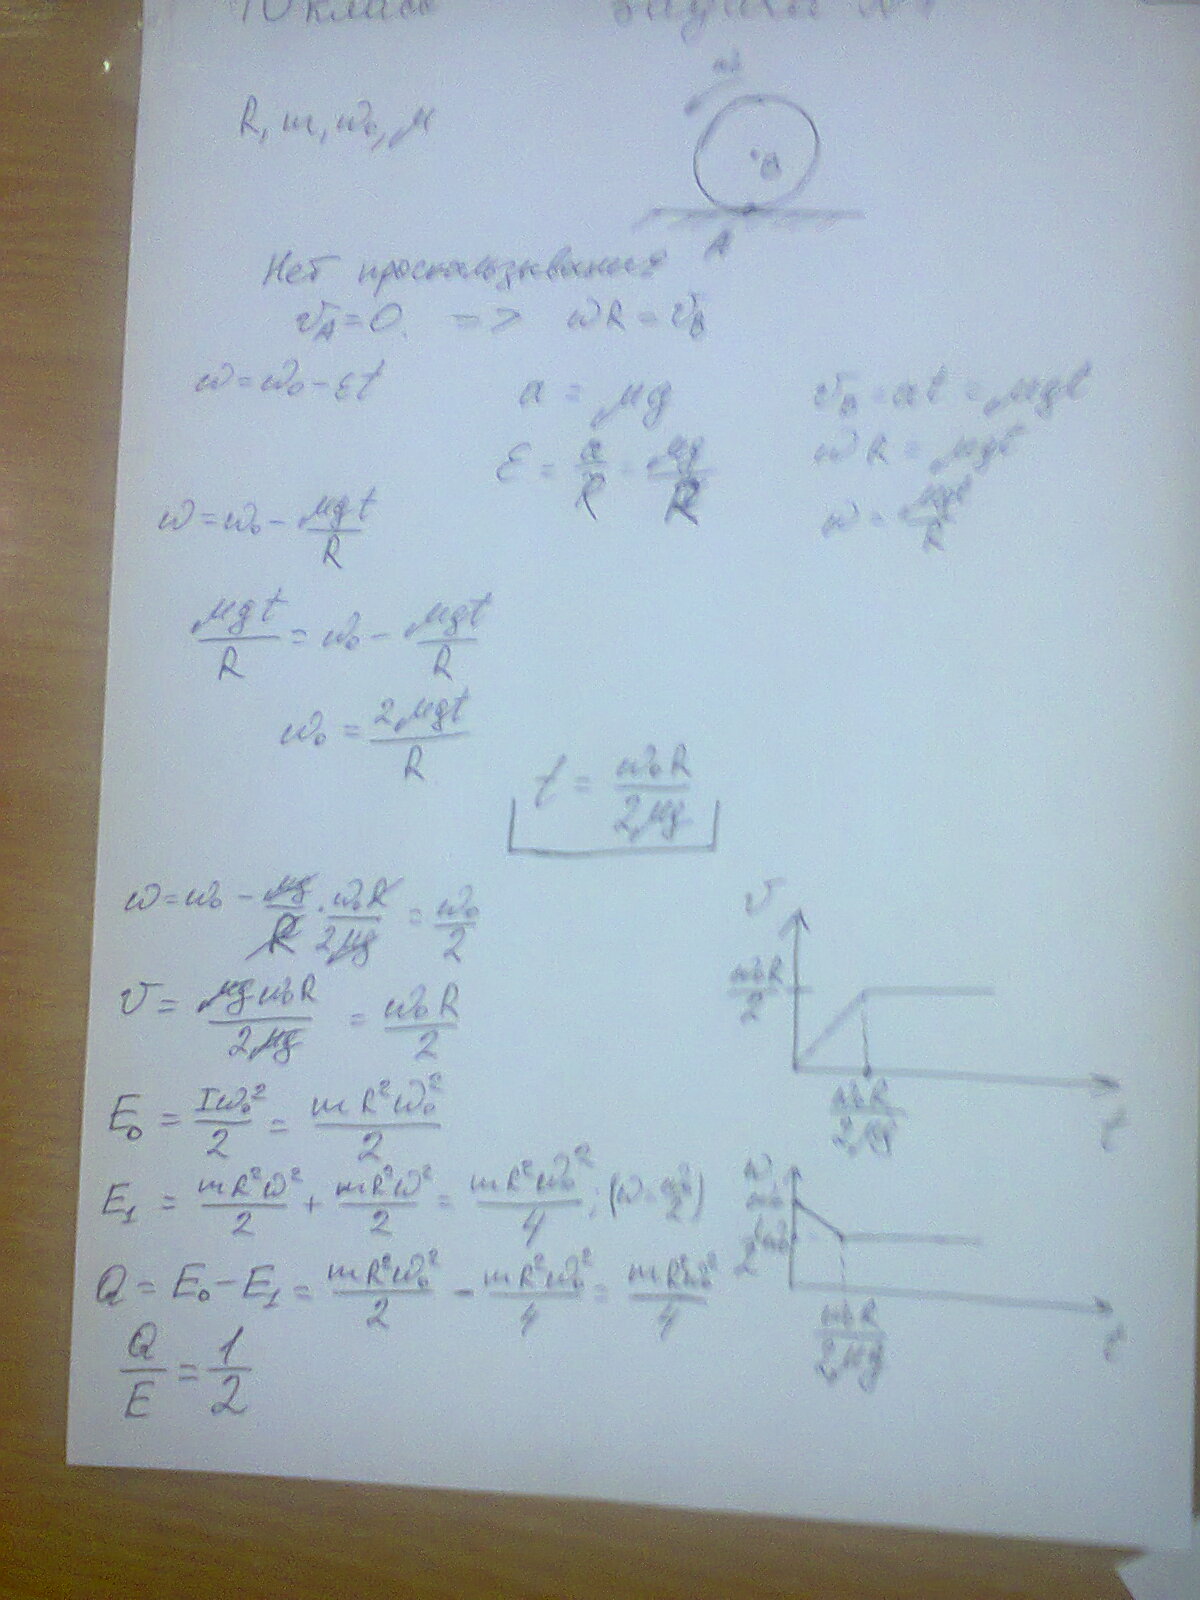 10 класс задача №1
ω₀
R, m, ω₀, μ
B
A
Нет проскальзывания
v_A = 0. => ωR = v_B
ω = ω₀ - εt
a = μg
v_B = at = μgt
ε = a/R = μg/R
ωR = μgt
ω = μgt/R
ω = ω₀ - μgt/R
μgt/R = ω₀ - μgt/R
ω₀ = 2μgt/R
t = ω₀R/2μg
ω = ω₀ - μg/R · ω₀R/2μg = ω₀/2
v = μgω₀R/2μg = ω₀R/2
E₀ = Iω₀²/2 = mR²ω₀²/2
E₁ = mR²ω²/2 + mR²ω²/2 = mR²ω₀²/4; (ω = ω₀/2)
Q = E₀ - E₁ = mR²ω₀²/2 - mR²ω₀²/4 = mR²ω₀²/4
Q/E = 1/2
v
ω₀R/2
ω₀R/2μg
t
ω
ω₀
ω₀R/2μg
t